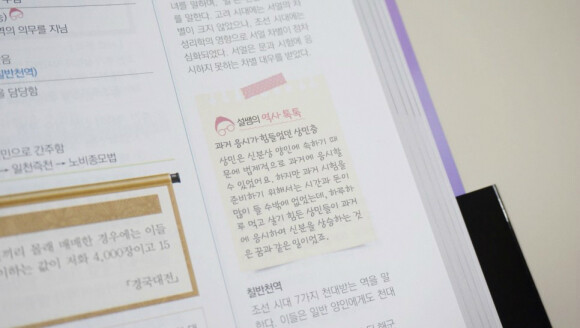 역의 의무를 지님
음
칠반천역)
을 담당함
만으로 간주함
→ 일천즉천 → 노비종모법
끼리 몰래 매매한 경우에는 이들
하는 값이 저화 4,000장이고 15
『경국대전』
녀를 말하며,
를 말한다. 고려 시대에는 서얼의 차
별이 크지 않았으나, 조선 시대에는
성리학의 영향으로 서얼 차별이 점차
심화되었다. 서얼은 문과 시험에 응
시하지 못하는 차별 대우를 받았다.
설쌤의 역사 톡톡
과거 응시가 힘들었던 상민층
상민은 신분상 양인에 속하기 때
문에 법제적으로 과거에 응시할
수 있었어요. 하지만 과거 시험을
준비하기 위해서는 시간과 돈이
많이 들 수밖에 없었는데, 하루하
루 먹고 살기 힘든 상민들이 과거
에 응시하여 신분을 상승하는 것
은 꿈과 같은 일이었죠.
칠반천역
조선 시대 7가지 천대받는 역을 말
한다. 이들은 일반 양인에게도 천대